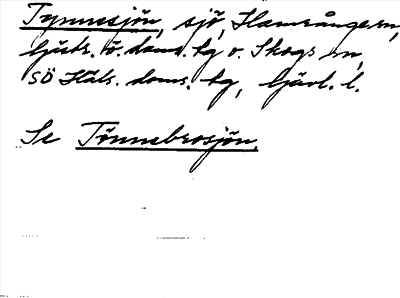 Tynnesjön, sjö, Hamrångesn,
Gästr. ö. doms. tg o. Skogs sn,
sö Häls. doms. tg, Gävl. l.
Se Tönnebrosjön.